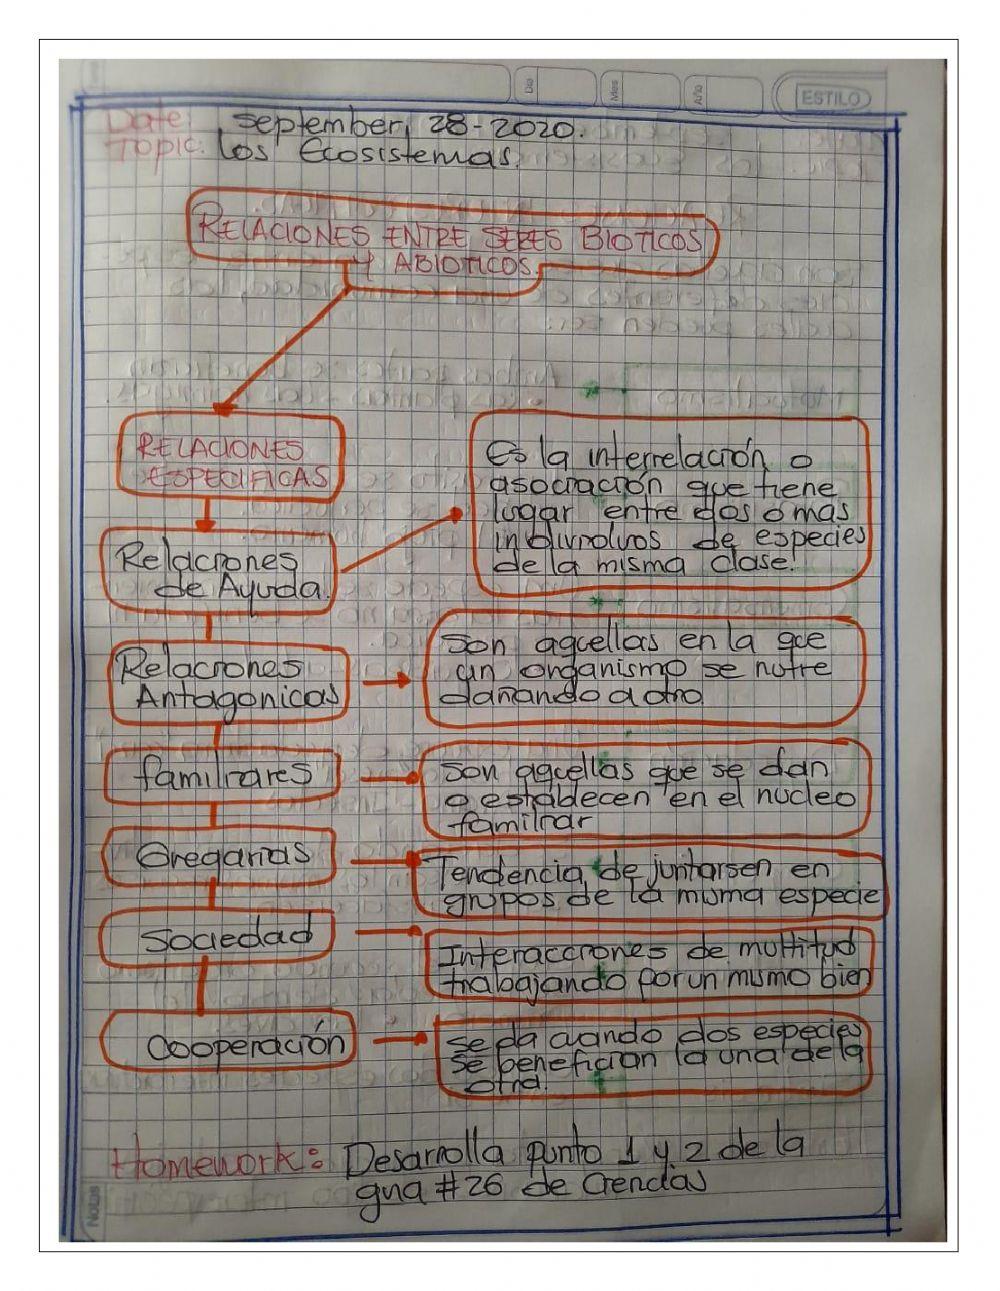 Dia
Mes
Año
ESTILO
Date: September, 28-2020.
Topic. Los Ecosistemas.
RELACIONES ENTRE SERES BIOTICOS
Y ABIOTICOS.
RELACIONES
ESPECIFICAS
Es la interrelación o
asociación que tiene
lugar entre dos o mas
individuos de especies
de la misma clase.
Relaciones
de Ayuda.
Relaciones
Antagonicas
Son aquellas en la que
un organismo se nutre
dañando a otro.
familiares
Son aquellas que se dan
o establecen en el nucleo
familiar
Gregarias
Tendencia de juntarsen en
grupos de la misma especie
Sociedad
Interacciones de multitud
trabajando por un mismo bien
Cooperación
se da cuando dos especies
se benefician la una de la
otra.
Homework: Desarrolla punto 1 y 2 de la
guia #26 de Ciencias
Notas